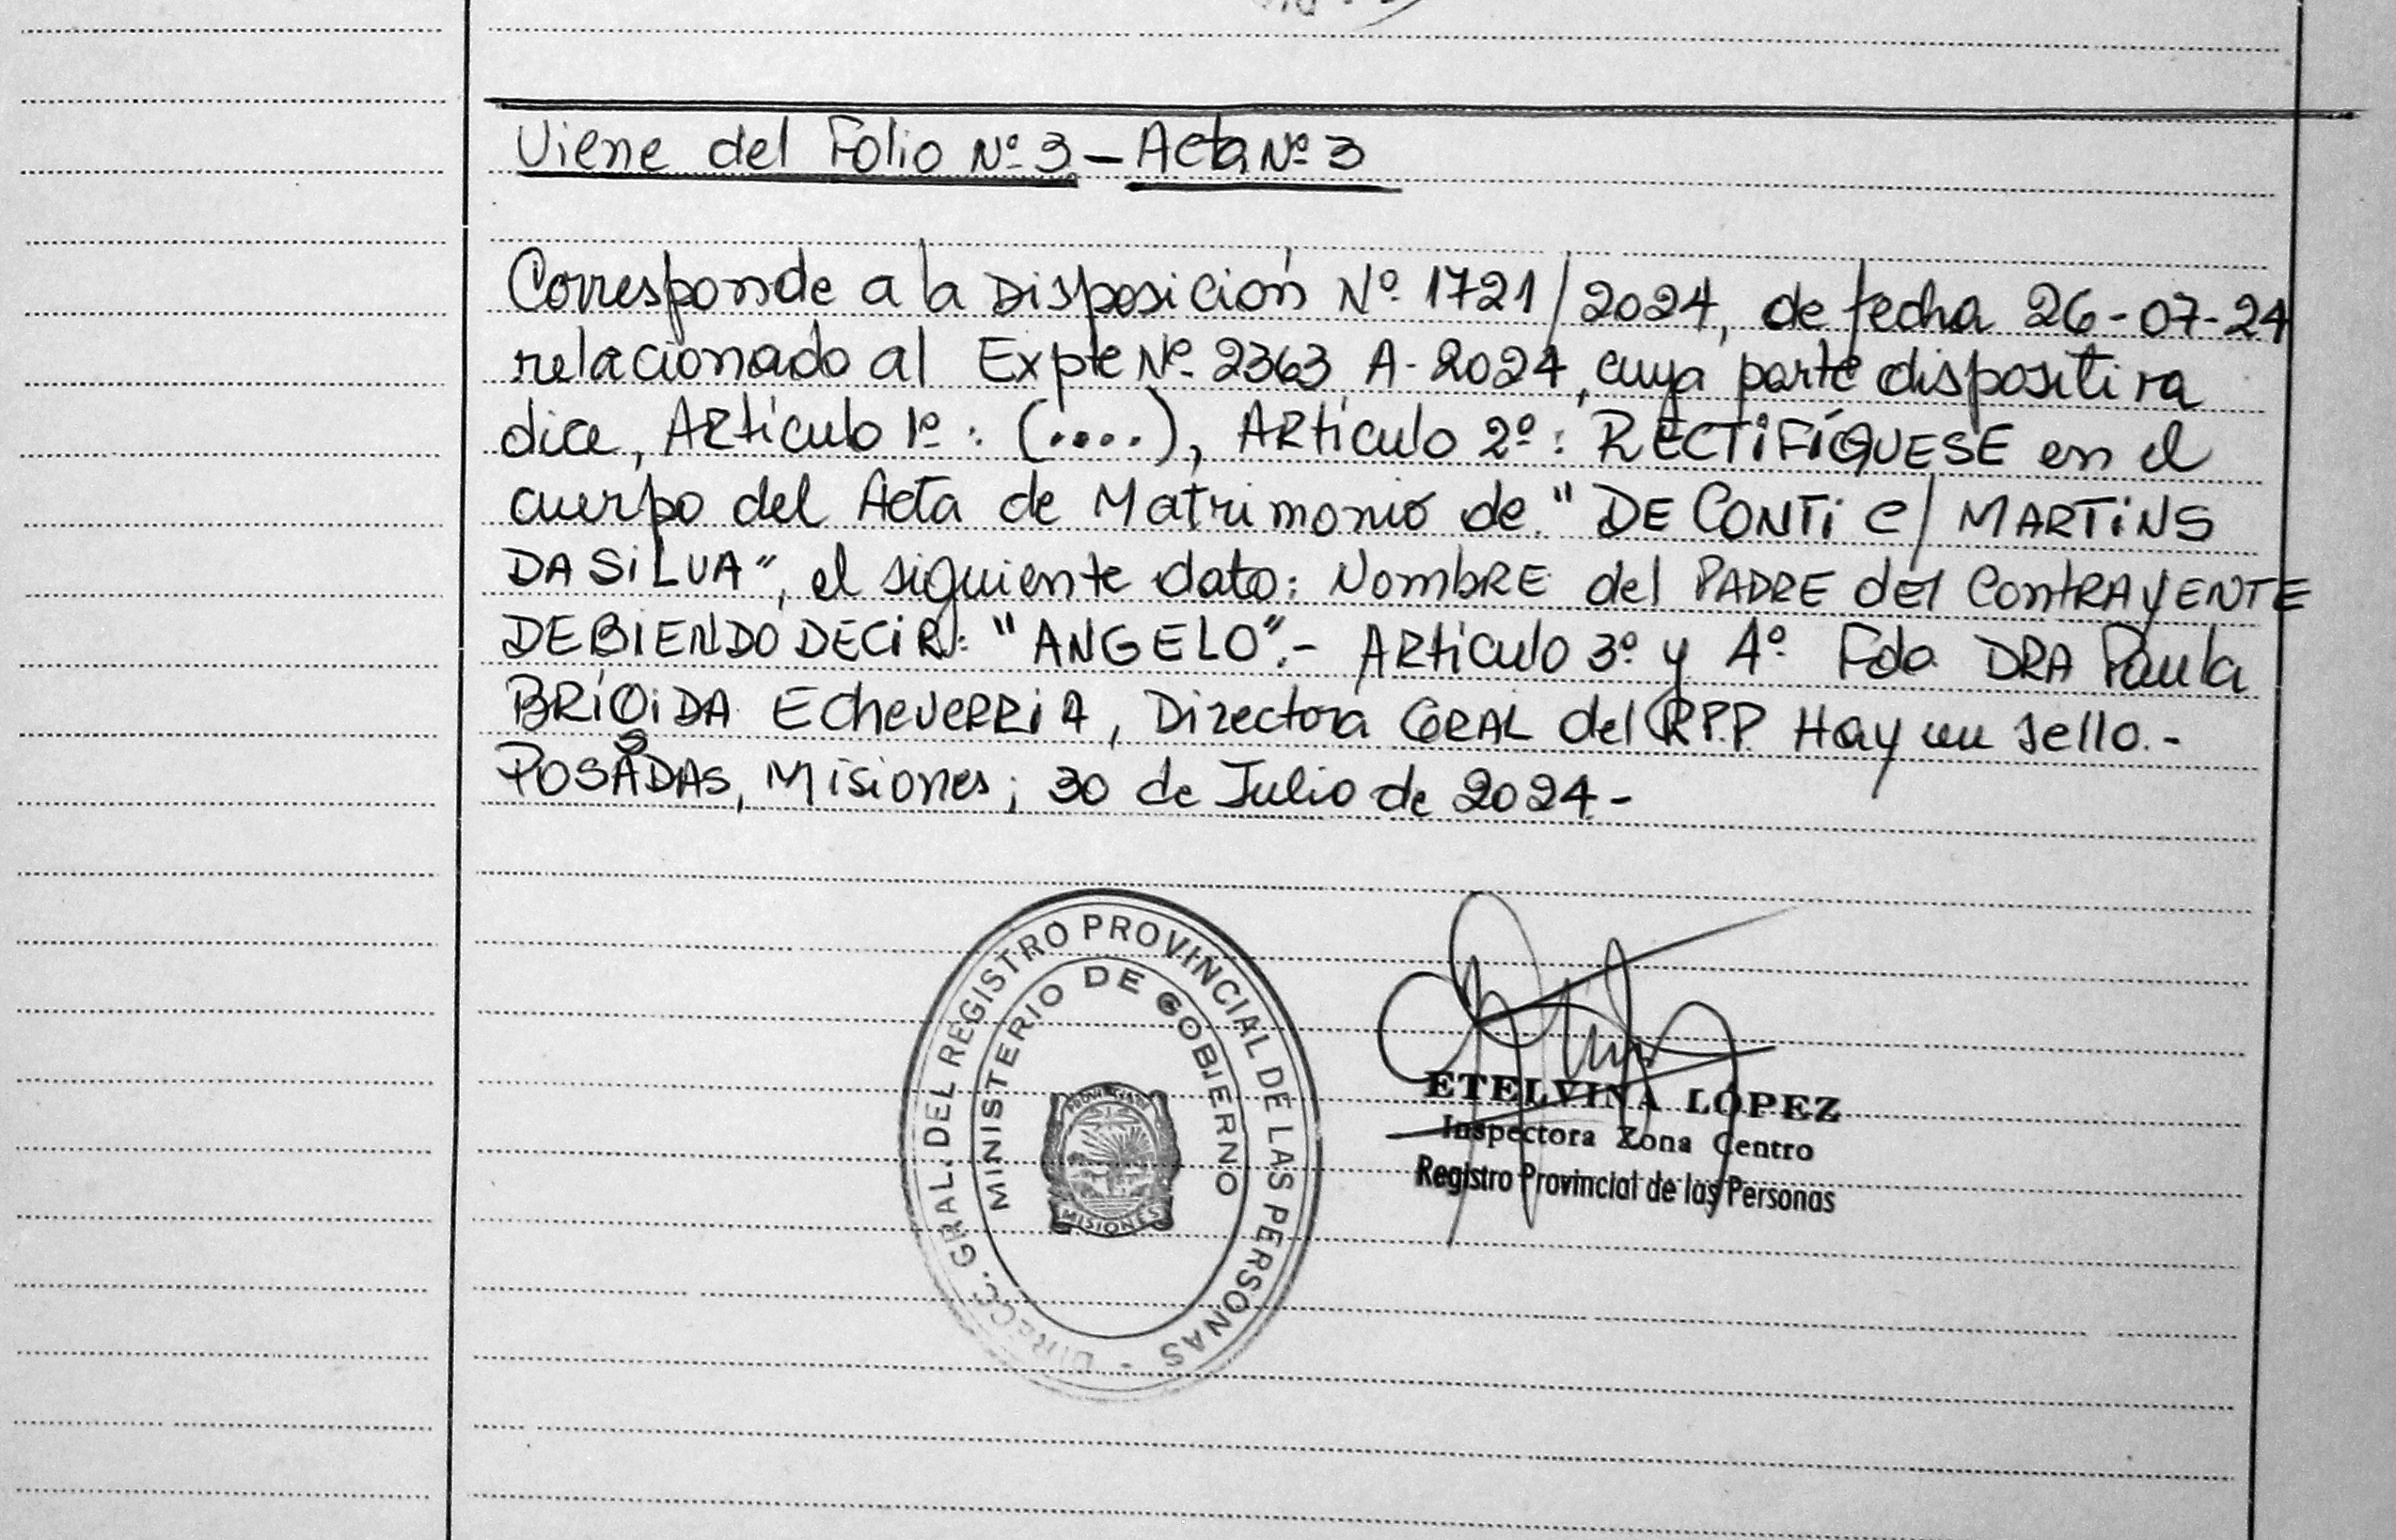 Viene del Folio Nº 3 – Acta Nº 3
Corresponde a la Disposición Nº 1721/2024, de fecha 26-07-24
relacionado al Expte Nº 2363 A-2024, cuya parte dispositiva
dice, Artículo 1º: (....), Artículo 2º: RECTIFÍQUESE en el
cuerpo del Acta de Matrimonio de "DE CONTI c/ MARTINS
DA SILVA", el siguiente dato: Nombre del PADRE del ContRAYENTE
DEBIENDO DECIR: "ANGELO".- Artículo 3º y 4º Fdo DRA Paula
BRÍGIDA EcheverriA, Directora GRAL del R.P.P. Hay un sello.-
POSADAS, Misiones; 30 de Julio de 2024-
DIRECC. GRAL. DEL REGISTRO PROVINCIAL DE LAS PERSONAS -
MINISTERIO DE GOBIERNO
MISIONES
ETELVINA LÓPEZ
Inspectora Zona Centro
Registro Provincial de las Personas